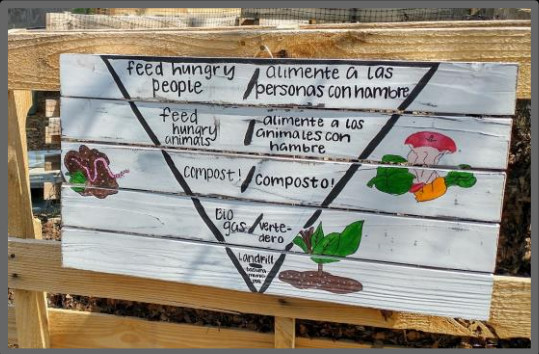 feed hungry people / alimente a las personas con hambre
feed hungry animals / alimente a los animales con hambre
compost! / Composto!
Bio gas / verte-dero
Landfill